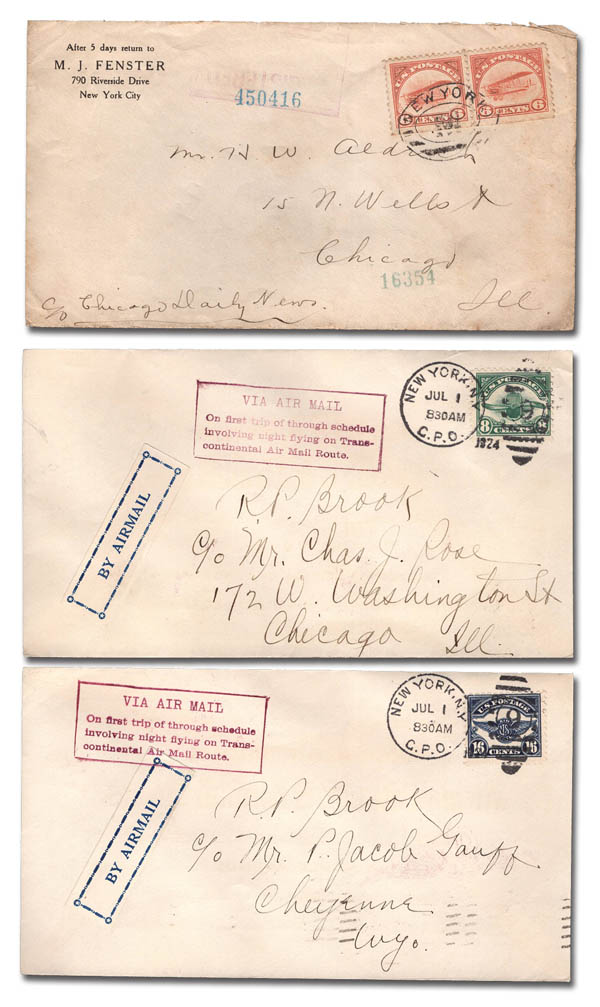 After 5 days return to
M. J. FENSTER
790 Riverside Drive
New York City
450416
U.S. POSTAGE
6 CENTS 6
U.S. POSTAGE
6 CENTS 6
NEW YORK
Mr. H. W.
15 N. Wells St
Chicago
16354
c/o Chicago Daily News.
Ill.
VIA AIR MAIL
On first trip of through schedule
involving night flying on Trans-
continental Air Mail Route.
NEW YORK, N.Y.
JUL 1
830AM
G.P.O.
1924
U.S. POSTAGE
8 CENTS 8
BY AIRMAIL
R.P. Brook
c/o Mr. Chas. J. Rose
172 W. Washington St
Chicago Ill.
VIA AIR MAIL
On first trip of through schedule
involving night flying on Trans-
continental Air Mail Route.
NEW YORK, N.Y.
JUL 1
830AM
G.P.O.
U.S. POSTAGE
16 CENTS 16
BY AIRMAIL
R.P. Brook
c/o Mr. P. Jacob Gauff
Cheyenne
Wyo.